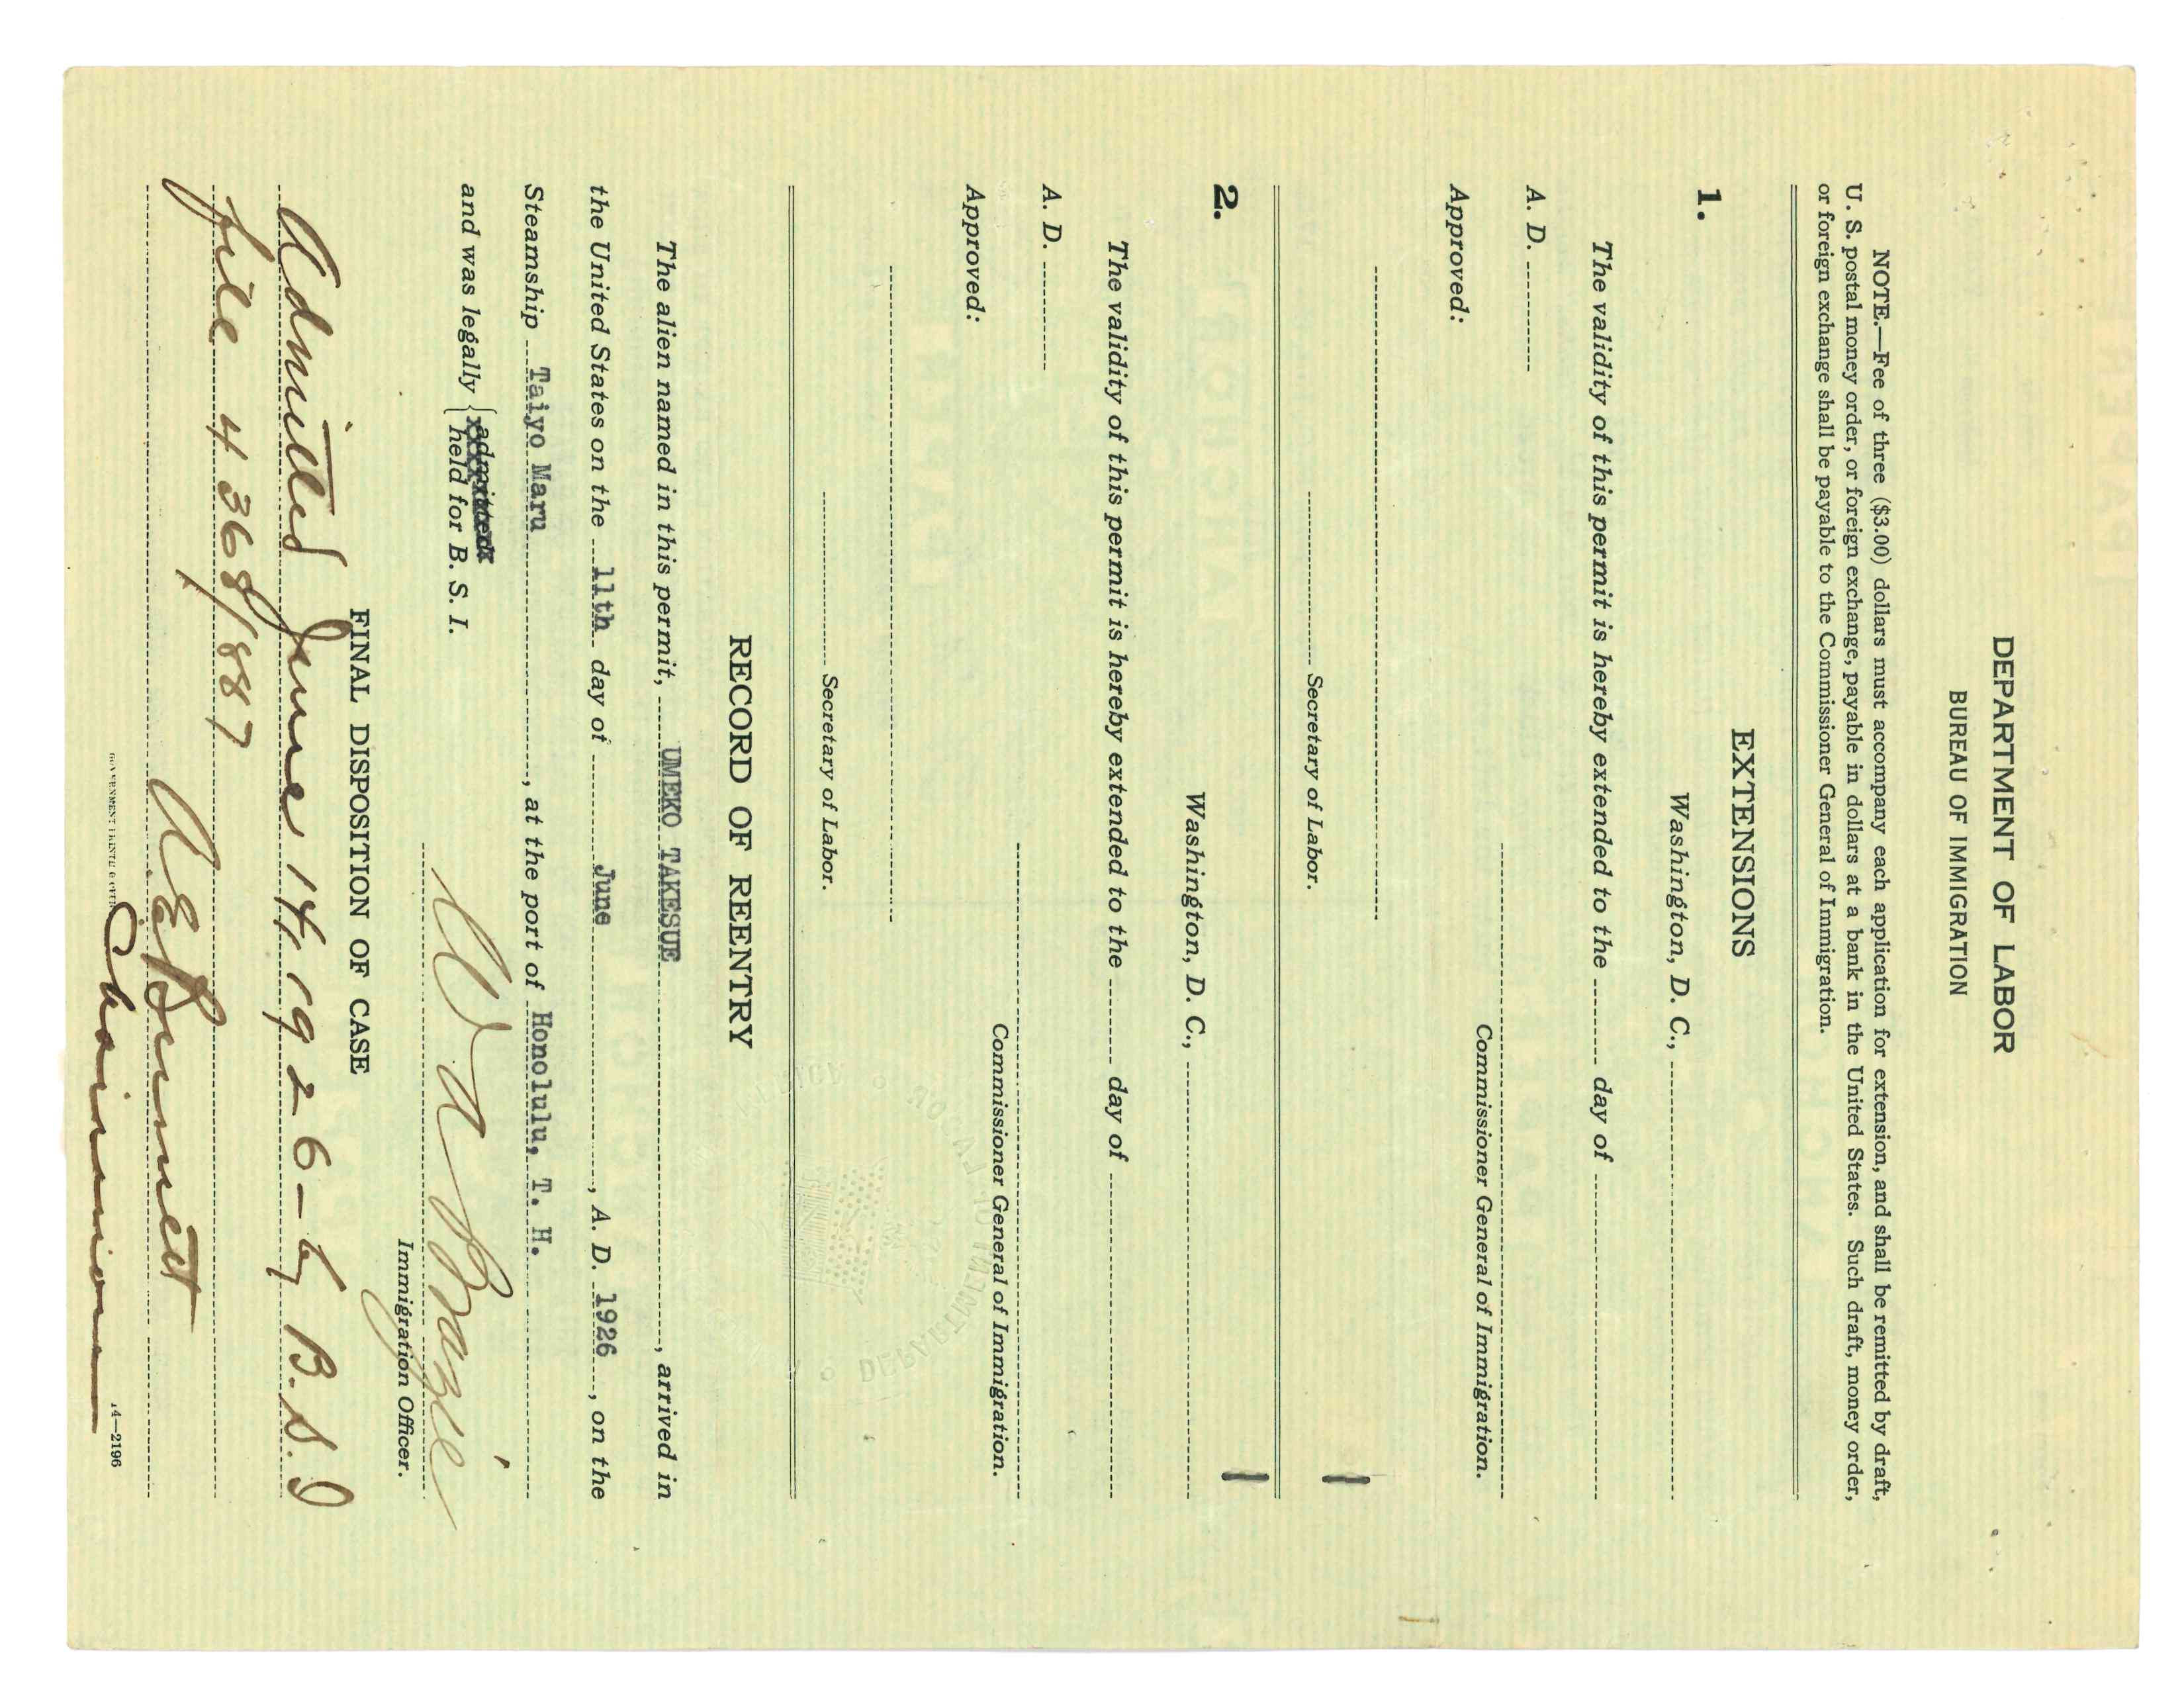 DEPARTMENT OF LABOR
BUREAU OF IMMIGRATION
NOTE.—Fee of three ($3.00) dollars must accompany each application for extension, and shall be remitted by draft,
U. S. postal money order, or foreign exchange, payable in dollars at a bank in the United States. Such draft, money order,
or foreign exchange shall be payable to the Commissioner General of Immigration.
EXTENSIONS
1.
Washington, D. C.,
The validity of this permit is hereby extended to the day of
A. D.
Commissioner General of Immigration.
Approved:
Secretary of Labor.
2.
Washington, D. C.,
The validity of this permit is hereby extended to the day of
A. D.
Commissioner General of Immigration.
Approved:
Secretary of Labor.
RECORD OF REENTRY
The alien named in this permit, UMEKO TAKESUE, arrived in
the United States on the 11th day of June, A. D. 1926, on the
Steamship Taiyo Maru, at the port of Honolulu, T. H.
and was legally admitted
held for B. S. I.
W A Brazie
Immigration Officer.
FINAL DISPOSITION OF CASE
Admitted June 14, 1926 - by B. S. I
file 4368/887
A. E. Burnett
Chairman
GOVERNMENT PRINTING OFFICE 14—2196